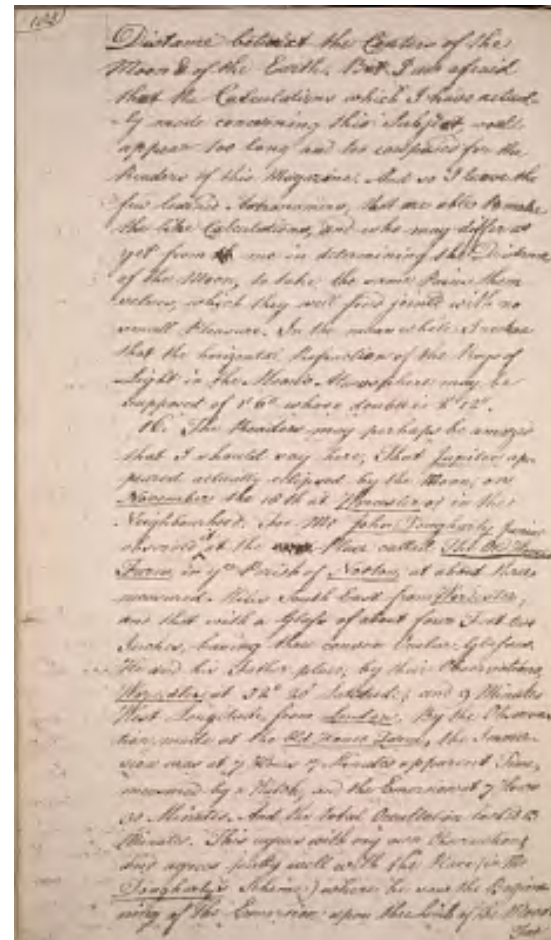 102
Distance betwixt the Centers of the
Moon & of the Earth. But I am afraid
that the Calculations which I have actual-
-ly made concerning this Subject would
appear too long and too confused for the
Readers of this Magazine. And so I leave the
few learned Astronomers, that are able to make
the like Calculations, and who may differ as
yet from me in determining the Distance
of the Moon, to take the same Pains them
selves, which they will find joined with no
small Pleasure. In the mean while I
that the horizontal Refraction of the Rays of
Light in the Moon's Atmosphere may be
supposed of 1' 6" whose double is 2' 12".
16. The Readers may perhaps be amazed
that I should say here, That Jupiter ap-
peared actually eclipsed by the Moon, on
November the 18th at Worcester or in the
Neighbourhood. For Mr John Dougharty Junior
observed it at the Place called The Old House
Farm, in ye Parish of Norton, at about three
measured Miles South East from Worcester,
and that with a Glass of about four Feet
Inches, having three convex Ocular Glasses.
He and his Father place, by their Observations,
Worcester at 52° 20' Latitude; and 9 Minutes
West Longitude, from London. By the Observa-
tion made at the Old House Farm, the Immer-
sion was at 7 Hours 7 Minutes apparent Time,
measured by a Watch, and the Emersion at 7 Hours
20 Minutes. And the total Occultation lasted 13
Minutes. This agrees with my own Observations
and agrees pretty well with the Place (in Mr
Dougharty's Scheme) where he saw the Begin-
ning of the Emersion upon the Limb of the Moon